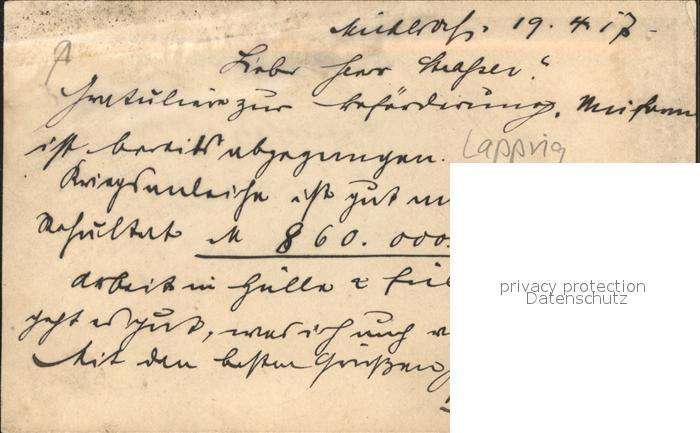 19. 4. 17.
Lieber Herr
Gratuliere zur Beförderung. Uniform
ist bereits abgegangen.
Kriegsanleihe ist gut
Resultat M 860.000.
Arbeit in Hülle &
geht es gut, was ich auch
Mit den besten Grüßen
privacy protection
Datenschutz